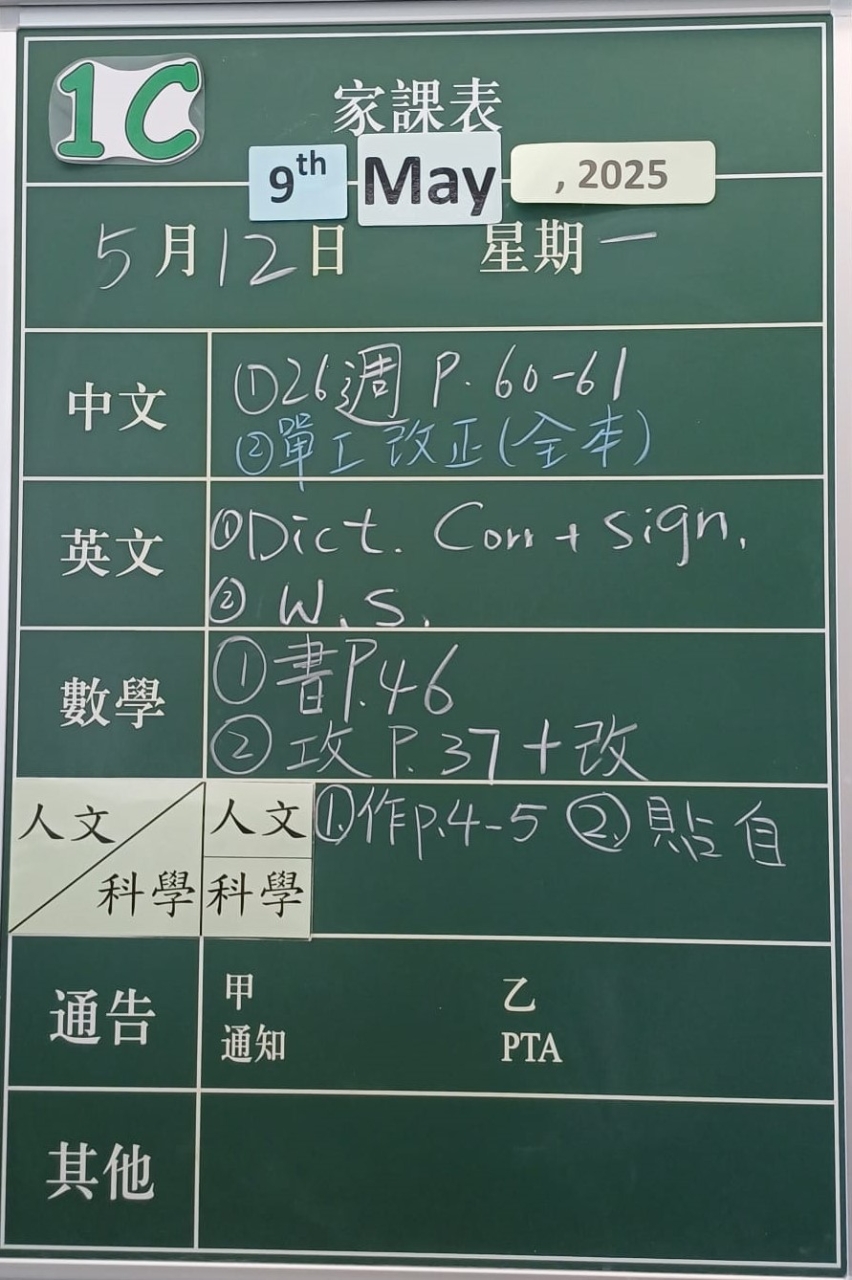 1C
家課表
9th May , 2025
5月12日 星期一
中文
①26週 P. 60-61
②單工改正(全本)
英文
①Dict. Corr + sign.
② W.S.
數學
①書P.46
②攻P.37+改
人文
科學
人文 ①.作p.4-5 ②.貼自
科學
通告
甲 乙
通知 PTA
其他